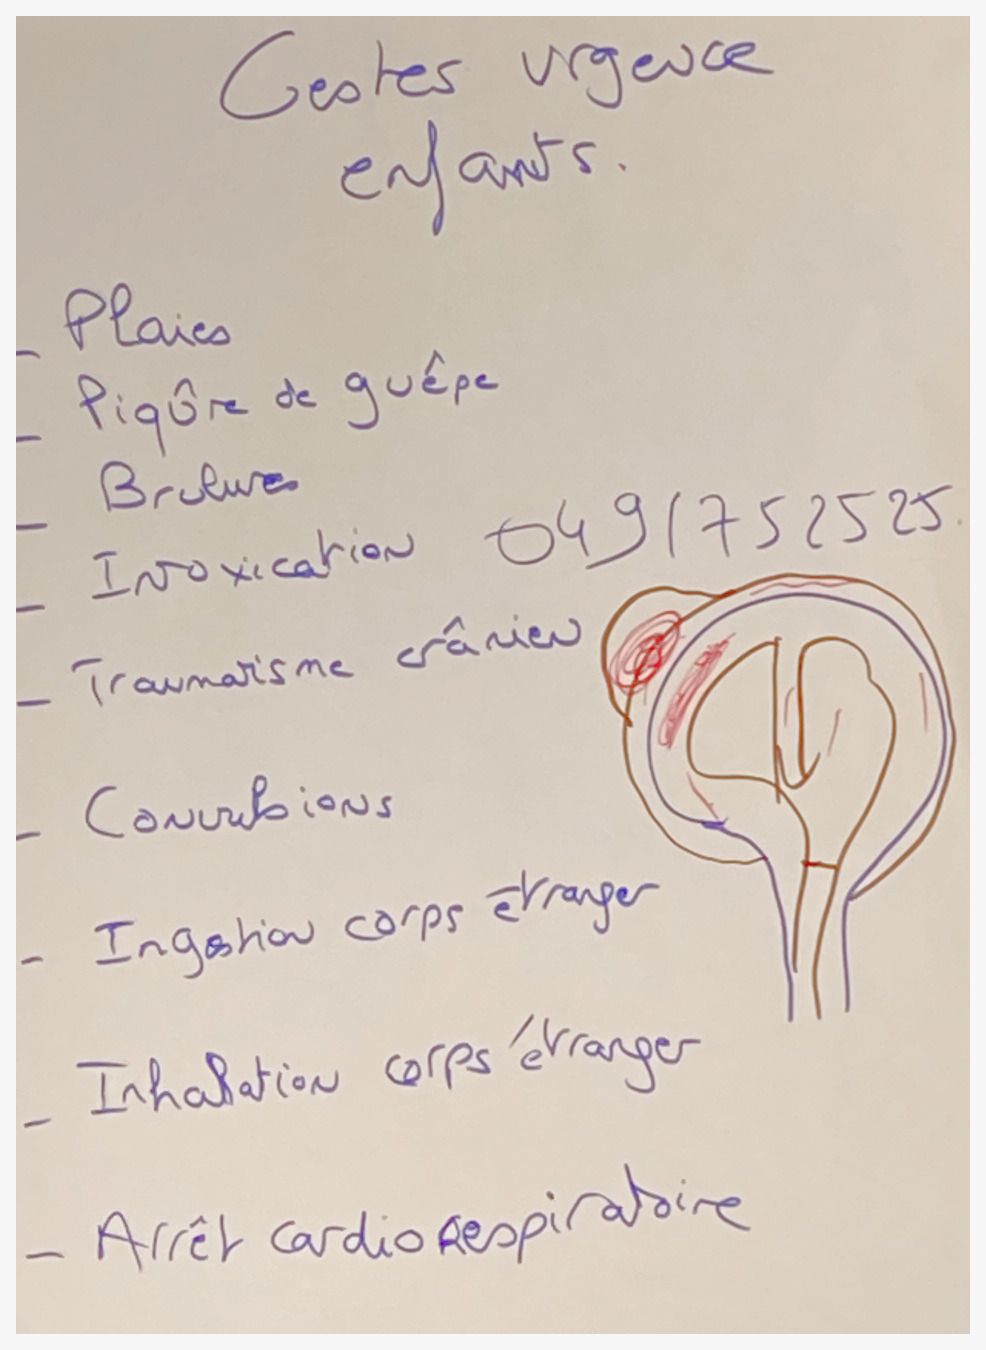 Gestes urgence
enfants.
- Plaies
- Piqûre de guêpe
- Brulures
- Intoxication 0491752525.
- Traumatisme crânien
- Convulsions
- Ingestion corps étranger
- Inhalation corps étranger
- Arrêt cardiorespiratoire